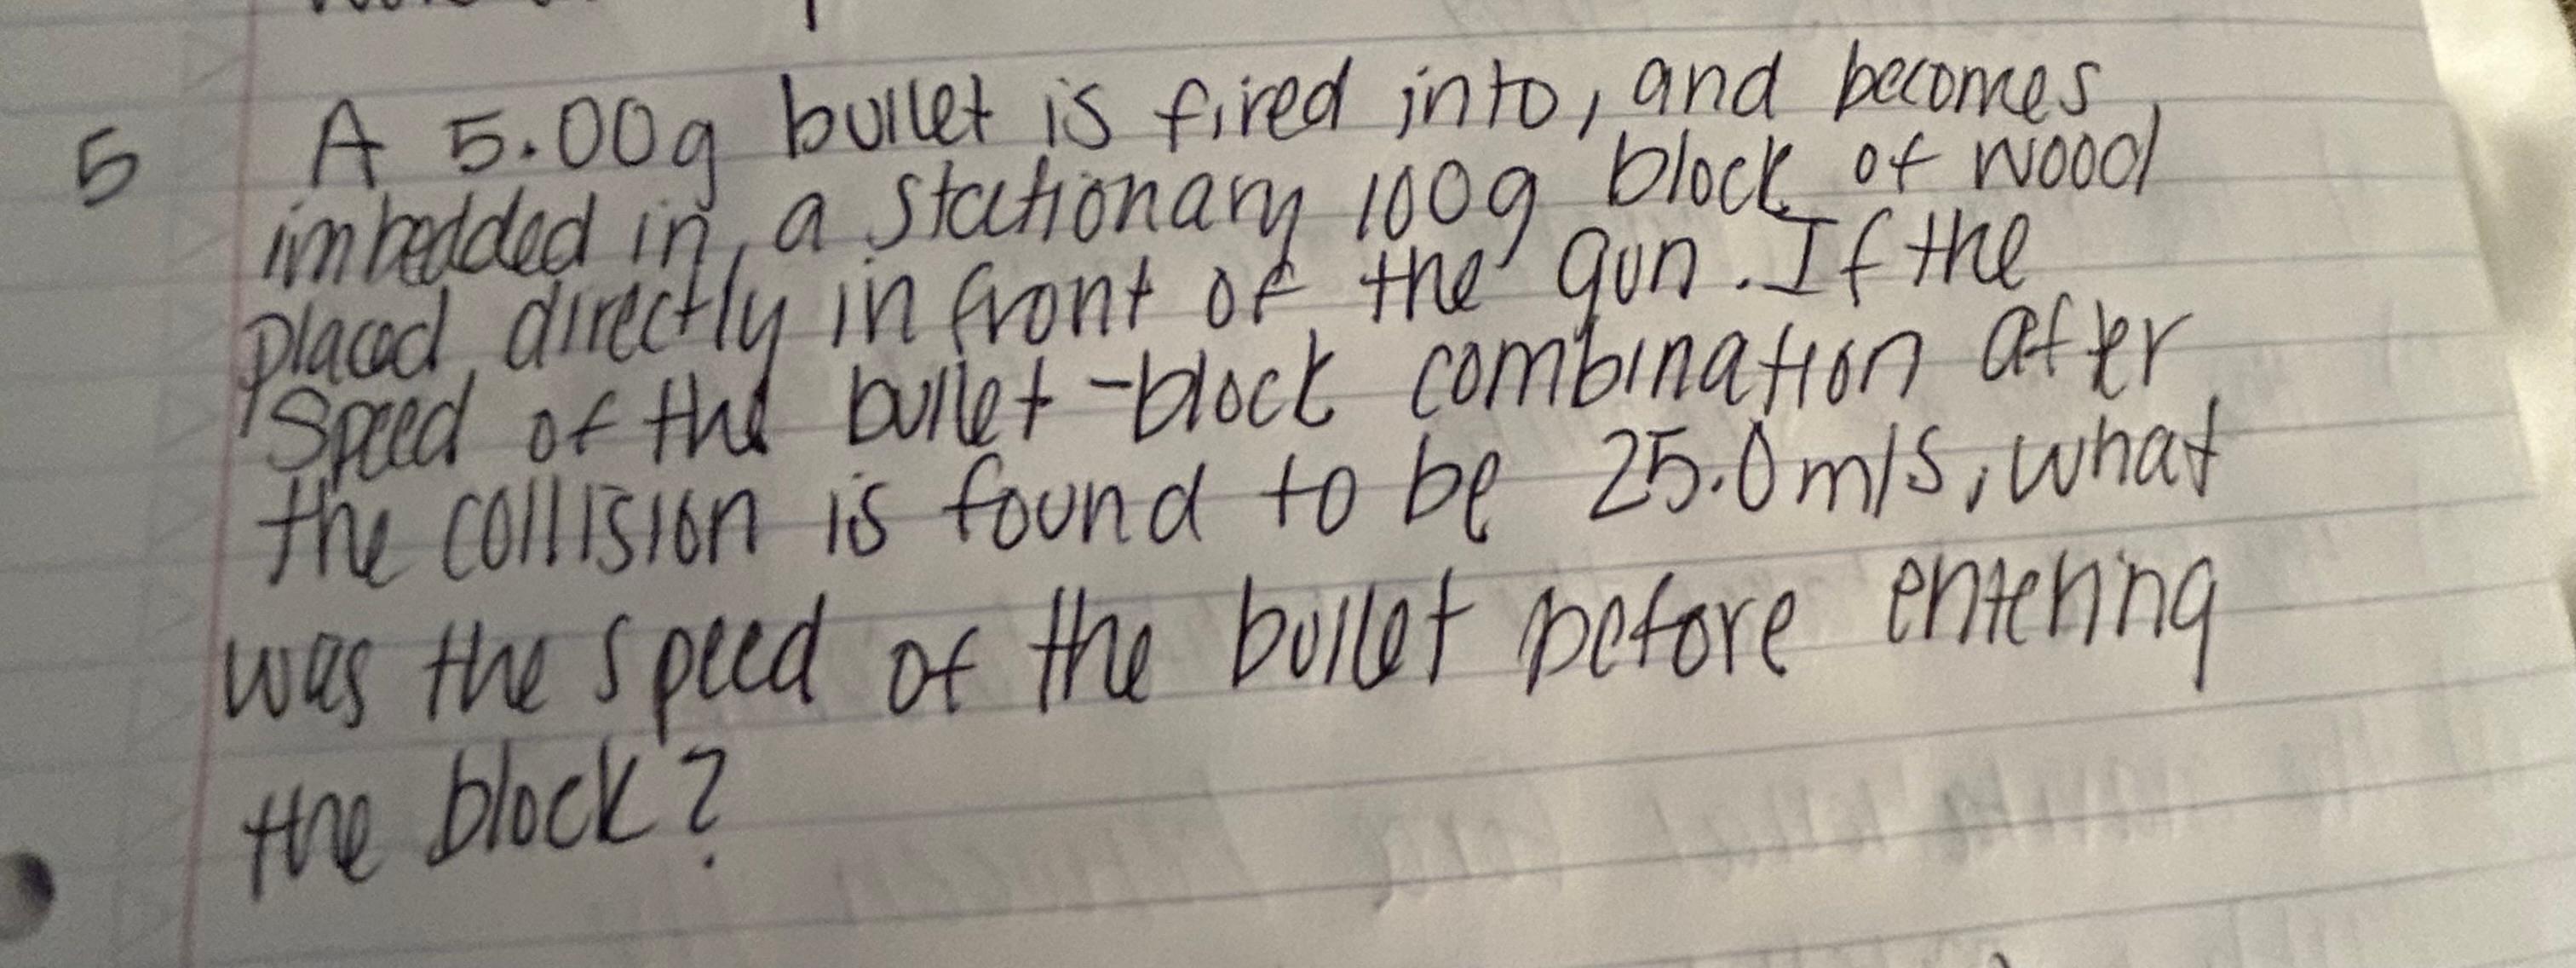 5 A 5.00g bullet is fired into, and becomes,
imbedded in, a stationary 100g block of wood
placed directly in front of the gun. If the
speed of the bullet-block combination after
the collision is found to be 25.0m/s, what
was the speed of the bullet before entering
the block?